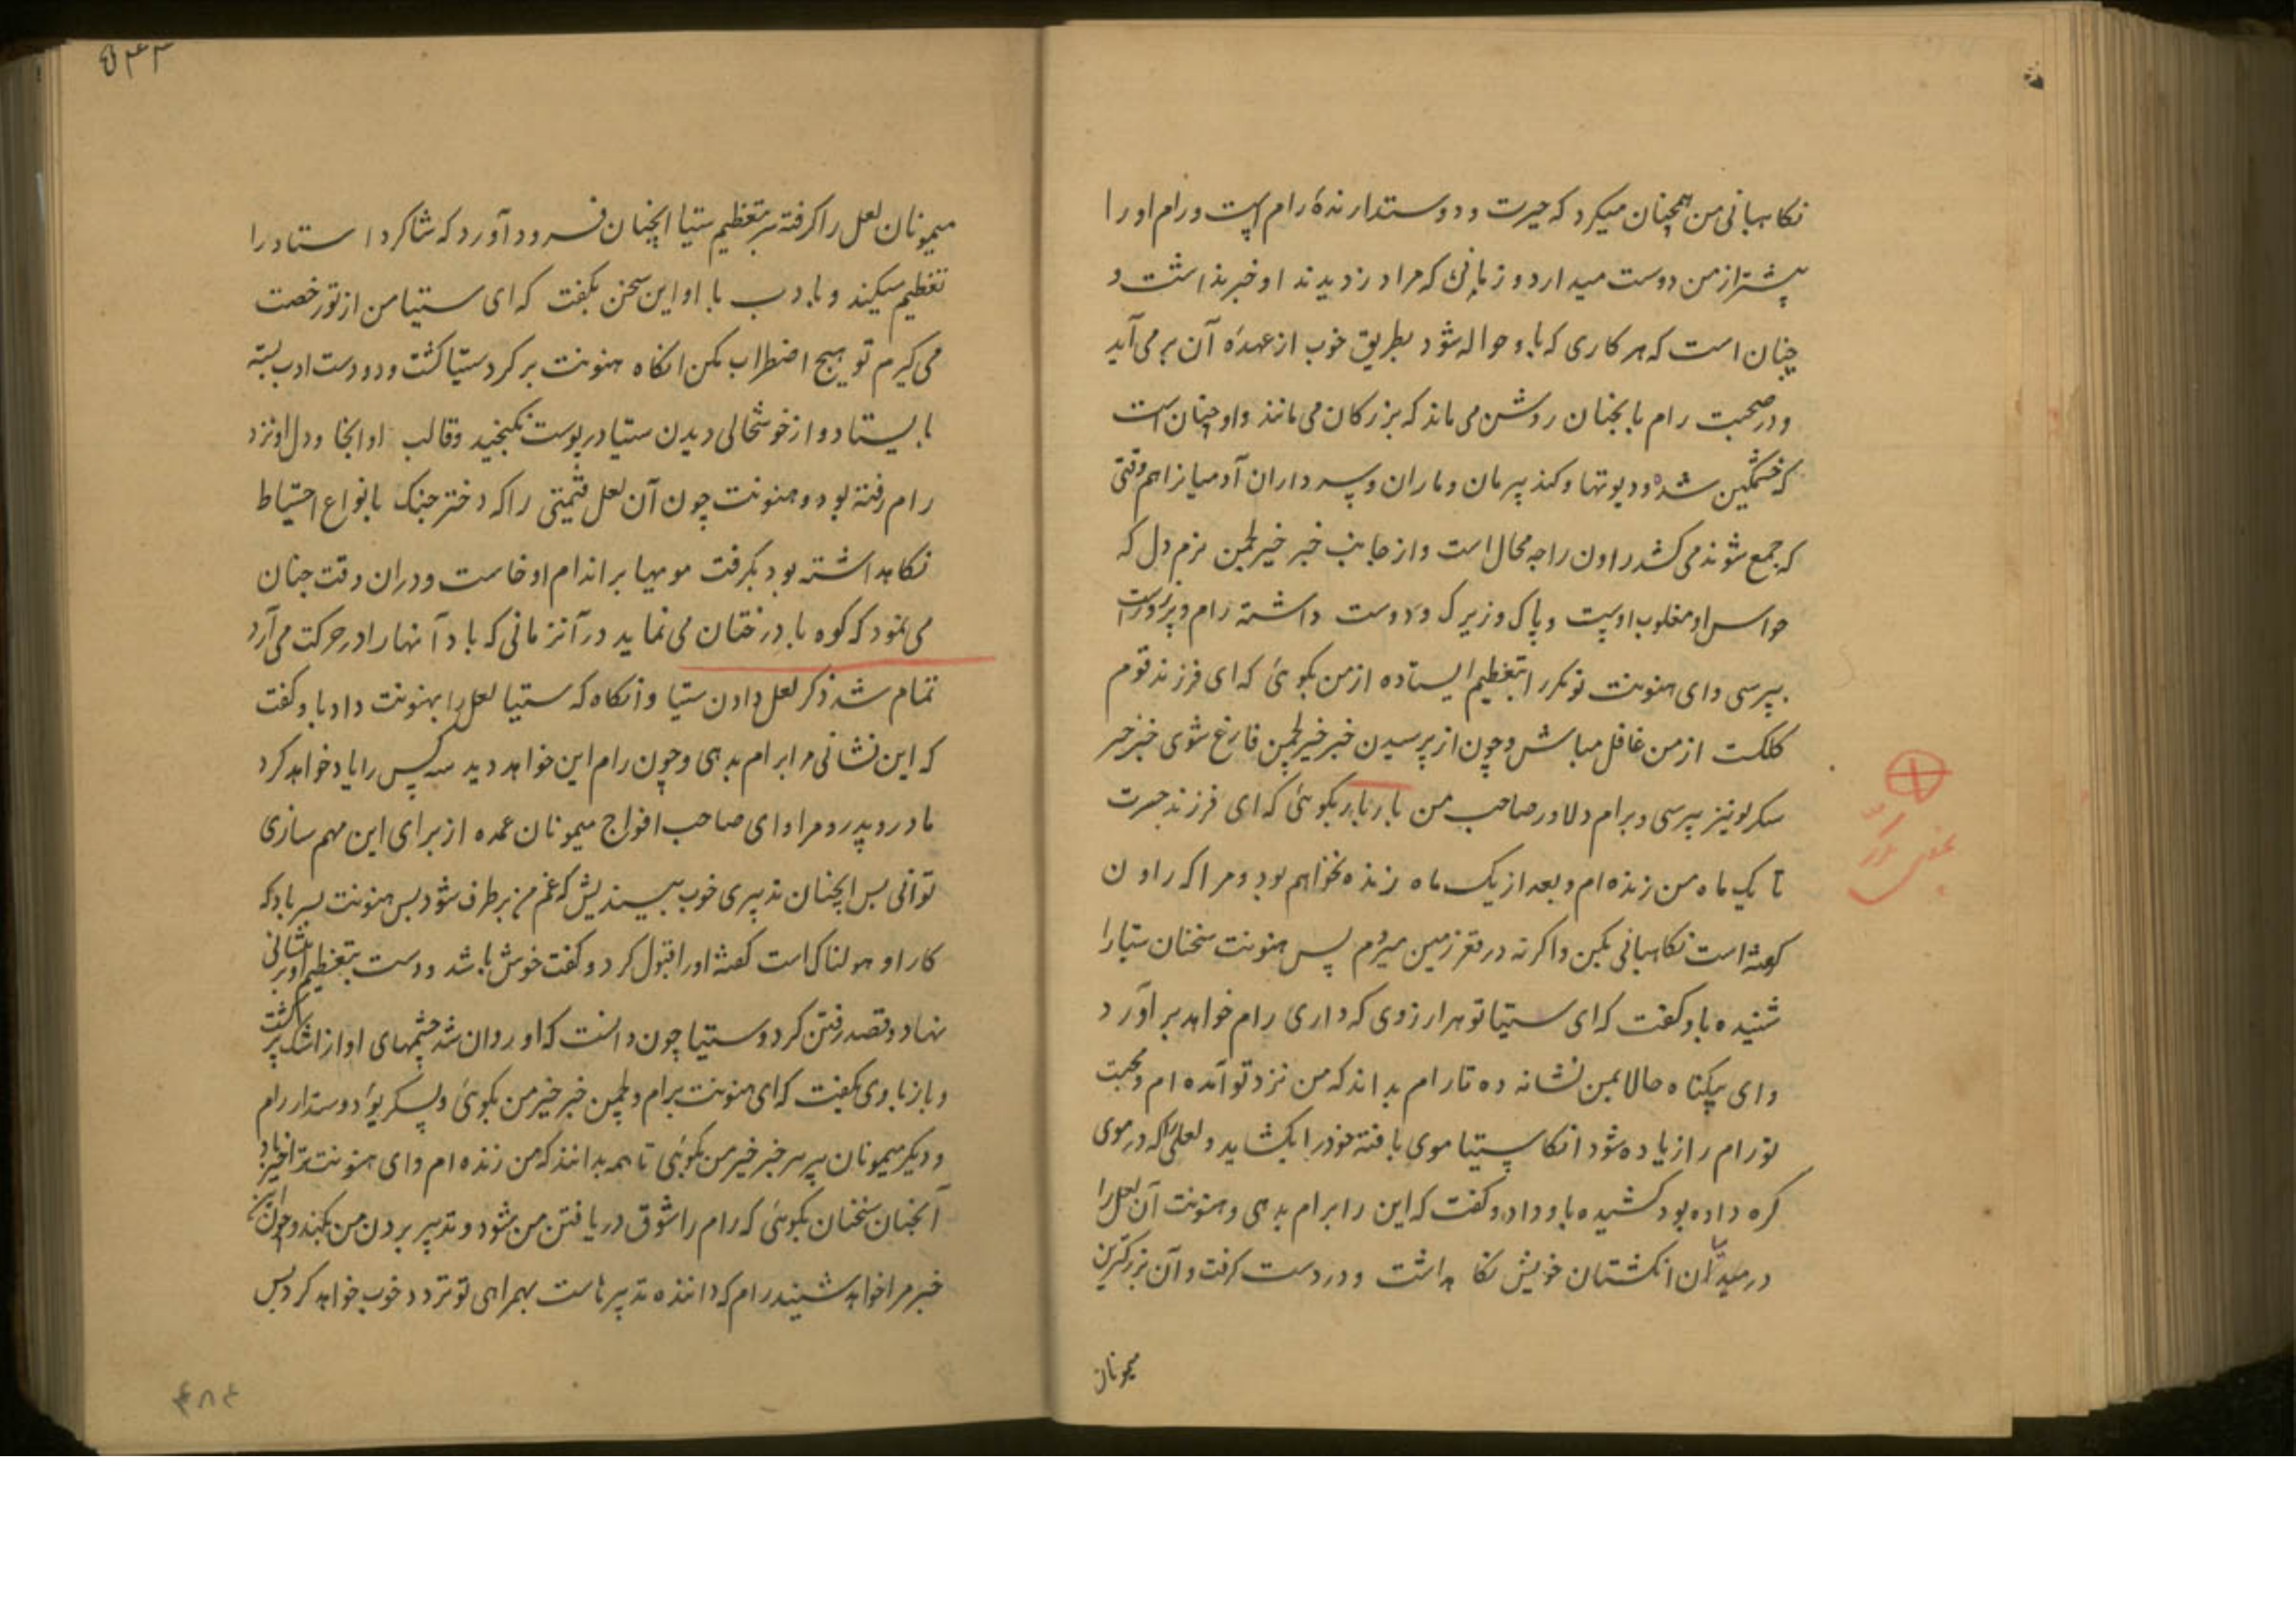 نکاهبانی من همچنان میکرد که حیرت و دوستدارندهٔ رام است و رام او را
بیشتر از من دوست میدارد و زمانی که مرا دزدیدند او خبر نداشت و
چنان است که هر کاری که باو حواله شود بطریق خوب از عهدهٔ آن بر می آید
و در صحبت رام بابجنان روشن می ماند که بزرکان می مانند و او چنان است
که خشمکین شده و دیوتها و کندپرمان و ماران و پسرداران آدمیانرا هم وقتی
که جمع شوند می کشد راون را چه محال است و از جانب خبر خیر لجمن نرم دل که
حواس او مغلوب اوست و پاک و زیرک و دوست داشته رام و پر زور است
بپرسی و ای هنونت تو مکرر ابتعظیم ایستاده از من بکوئی که ای فرزند قوم
کلکت از من غافل مباش و چون از پرسیدن خبر خیر لجمن فارغ شوی خبر خیر
سکریو نیز بپرسی و برام دلاور صاحب من بار بار بکوئی که ای فرزند جسرت
تا یک ماه من زنده ام و بعد از یک ماه زنده نخواهم بود و مرا که راون
کهشته است نکاهبانی بکن و اکرنه در قعر زمین میروم پس هنونت سخنان ستیا را
شنیده باو کفت که ای ستیا تو هر ارزوی که داری رام خواهد بر آورد
و ای بیکناه حالا بمن نشانه ده تا رام بداند که من نزد تو آمده ام و محبت
تو رام را زیاده شود انکاه ستیا موی بافته خود را بکشاید و لعلی را که در موی
کره داده بود کشیده باو داد و کفت که این را برام بدهی و هنونت آن لعل را
در میان انکشتان خویش نکاهداشت و در دست کرفت و آن بزرکترین
میمونان
۵۴۴
میمونان لعل را کرفته سر بتعظیم ستیا انچنان فرود آورد که شاکرد استاد را
تعظیم میکند و بادب با او این سخن بکفت که ای ستیا من از تو رخصت
می کیرم تو هیچ اضطراب مکن انکاه هنونت بر کرد ستیا کشت و دو دست ادب بسته
بایستاد و از خوشحالی دیدن ستیا در پوست نمیکنجید و قالب او انجا و دل او نزد
رام رفته بود و هنونت چون آن لعل قیمتی را که دختر جنک بانواع احتیاط
نکاهداشته بود بکرفت مویها بر اندام او خاست و در ان وقت چنان
می نمود که کوه با درختان می نماید در آنزمانی که باد آنها را در حرکت می آرد
تمام شد ذکر لعل دادن ستیا و انکاه که ستیا لعل را بهنونت داد باو کفت
که این نشانی مرا برام بدهی و چون رام این خواهد دید سه کس را یاد خواهد کرد
مادر و پدر و مرا و ای صاحب افواج میمونان عمده از برای این مهم سازی
توانی پس انچنان تدبیری خوب بیندیش که غم من بر طرف شود پس هنونت پسر باد که
کار او هولناک است کفته او را قبول کرد و کفت خوش باشد و دست بتعظیم او بر پیشانی
نهاد و قصد رفتن کرد و ستیا چون دانست که او روان شد چشمهای او از اشک پر کشت
و باز با وی بکفت که ای هنونت برام و لجمن خبر خیر من بکوئی و بسکریو دوستدار رام
و دیکر میمونان پیر سر خبر خیر من بکوئی تا همه بدانند که من زنده ام و ای هنونت
آنچنان سخنان بکوئی که رام را شوق دریافتن من شود و تدبیر بردن من بکند و چون
خبر مرا خواهد شنید رام که داننده تدبیرهاست بهمراهی تو تردد خوب خواهد کرد پس